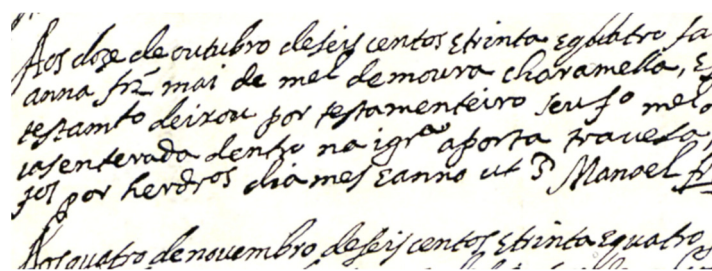 Aos doze de outubro de seis centos e trinta e quatro fa
anna frz mai de mel de moura charamella, e
testamto deixou por testamenteiro seu fo mel
jas enterrada dentro na igra a porta travesa,
por herdros dia mes e anno ut s Manoel
Aos quatro de novembro de seis centos e trinta e quatro